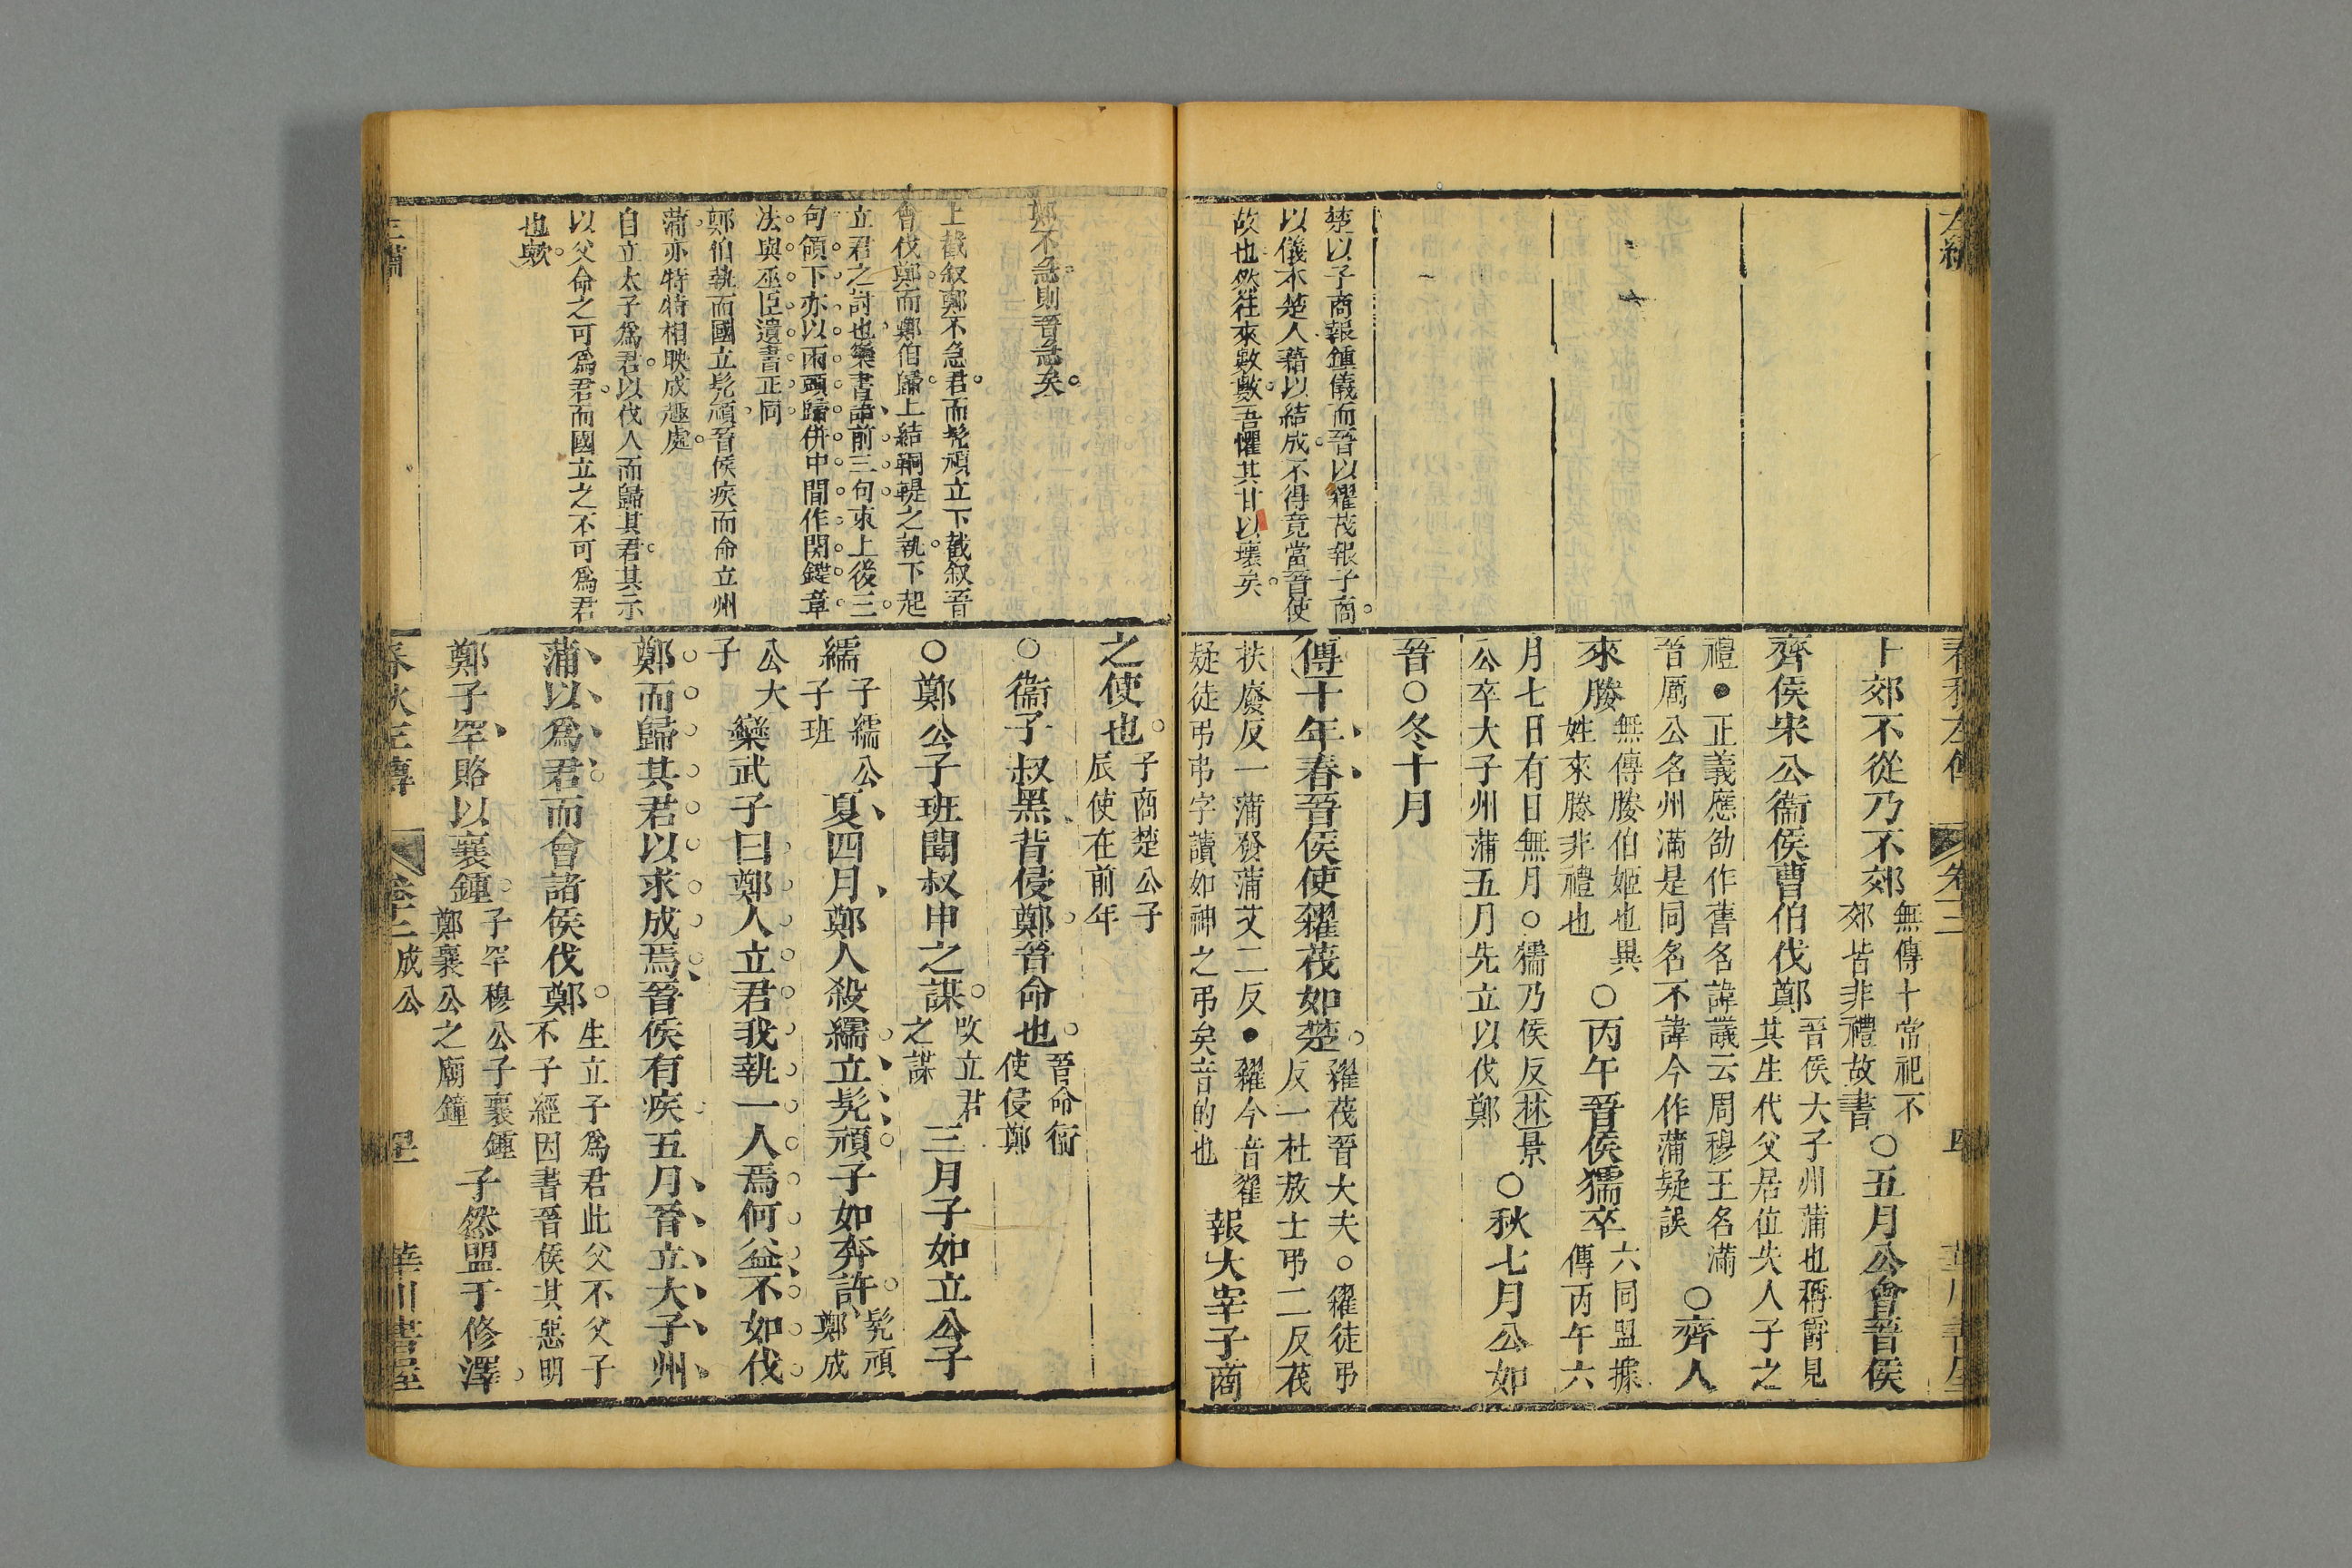 楚以子商報鍾儀而晉以糴茷報子商
以儀本楚人藉以結成不得竟當晉使
故也然往來數數吾懼其甘以壞矣
卜郊不從乃不郊
無傳卜常祀不
郊皆非禮故書
○五月公會晉侯
齊侯宋公衞侯曹伯伐鄭
晉侯大子州蒲也稱爵見
其生代父居位失人子之
禮●正義應劭作舊名諱議云周穆王名滿
晉厲公名州滿是同名不諱今作蒲疑誤
○齊人
來媵
無傳媵伯姬也異
姓來媵非禮也
○丙午晉侯獳卒
六同盟據
傳丙午六
月七日有日無月○獳乃侯反林景
公卒大子州蒲五月先立以伐鄭
○秋七月公如
晉○冬十月
傳十年春晉侯使糴茷如楚
糴茷晉大夫○糴徒弔
反一杜敖士弔二反茷
扶廢反一蒲發蒲艾二反●糴今音糴
疑徒弔弔字讀如神之弔矣音的也
報大宰子商
鄭不急則晉急矣
上截叙鄭不急君而髡頑立下截叙晉
會伐鄭而鄭伯歸上結銅鞮之執下起
立君之討也欒書語前三句束上後三
句領下亦以兩頭歸併中間作関鍵章
法與巫臣遺書正同
鄭伯執而國立髡頑晉侯疾而命立州
蒲亦特特相映成趣處
自立太子爲君以伐人而歸其君其示
以父命之可爲君而國立之不可爲君
也歟
之使也
子商楚公子
辰使在前年
○衞子叔黑背侵鄭晉命也
晉命衞
使侵鄭
○鄭公子班聞叔申之謀
改立君
之謀
三月子如立公子
繻
子繻公
子班
夏四月鄭人殺繻立髡頑子如奔許
髡頑
鄭成
公大
子
欒武子曰鄭人立君我執一人焉何益不如伐
鄭而歸其君以求成焉晉侯有疾五月晉立大子州
蒲以爲君而會諸侯伐鄭
生立子爲君此父不父子
不子經因書晉侯其惡明
鄭子罕賂以襄鍾
子罕穆公子襄鍾
鄭襄公之廟鐘
子然盟于修澤
春秋左傳
卷十二
成公
華川書屋